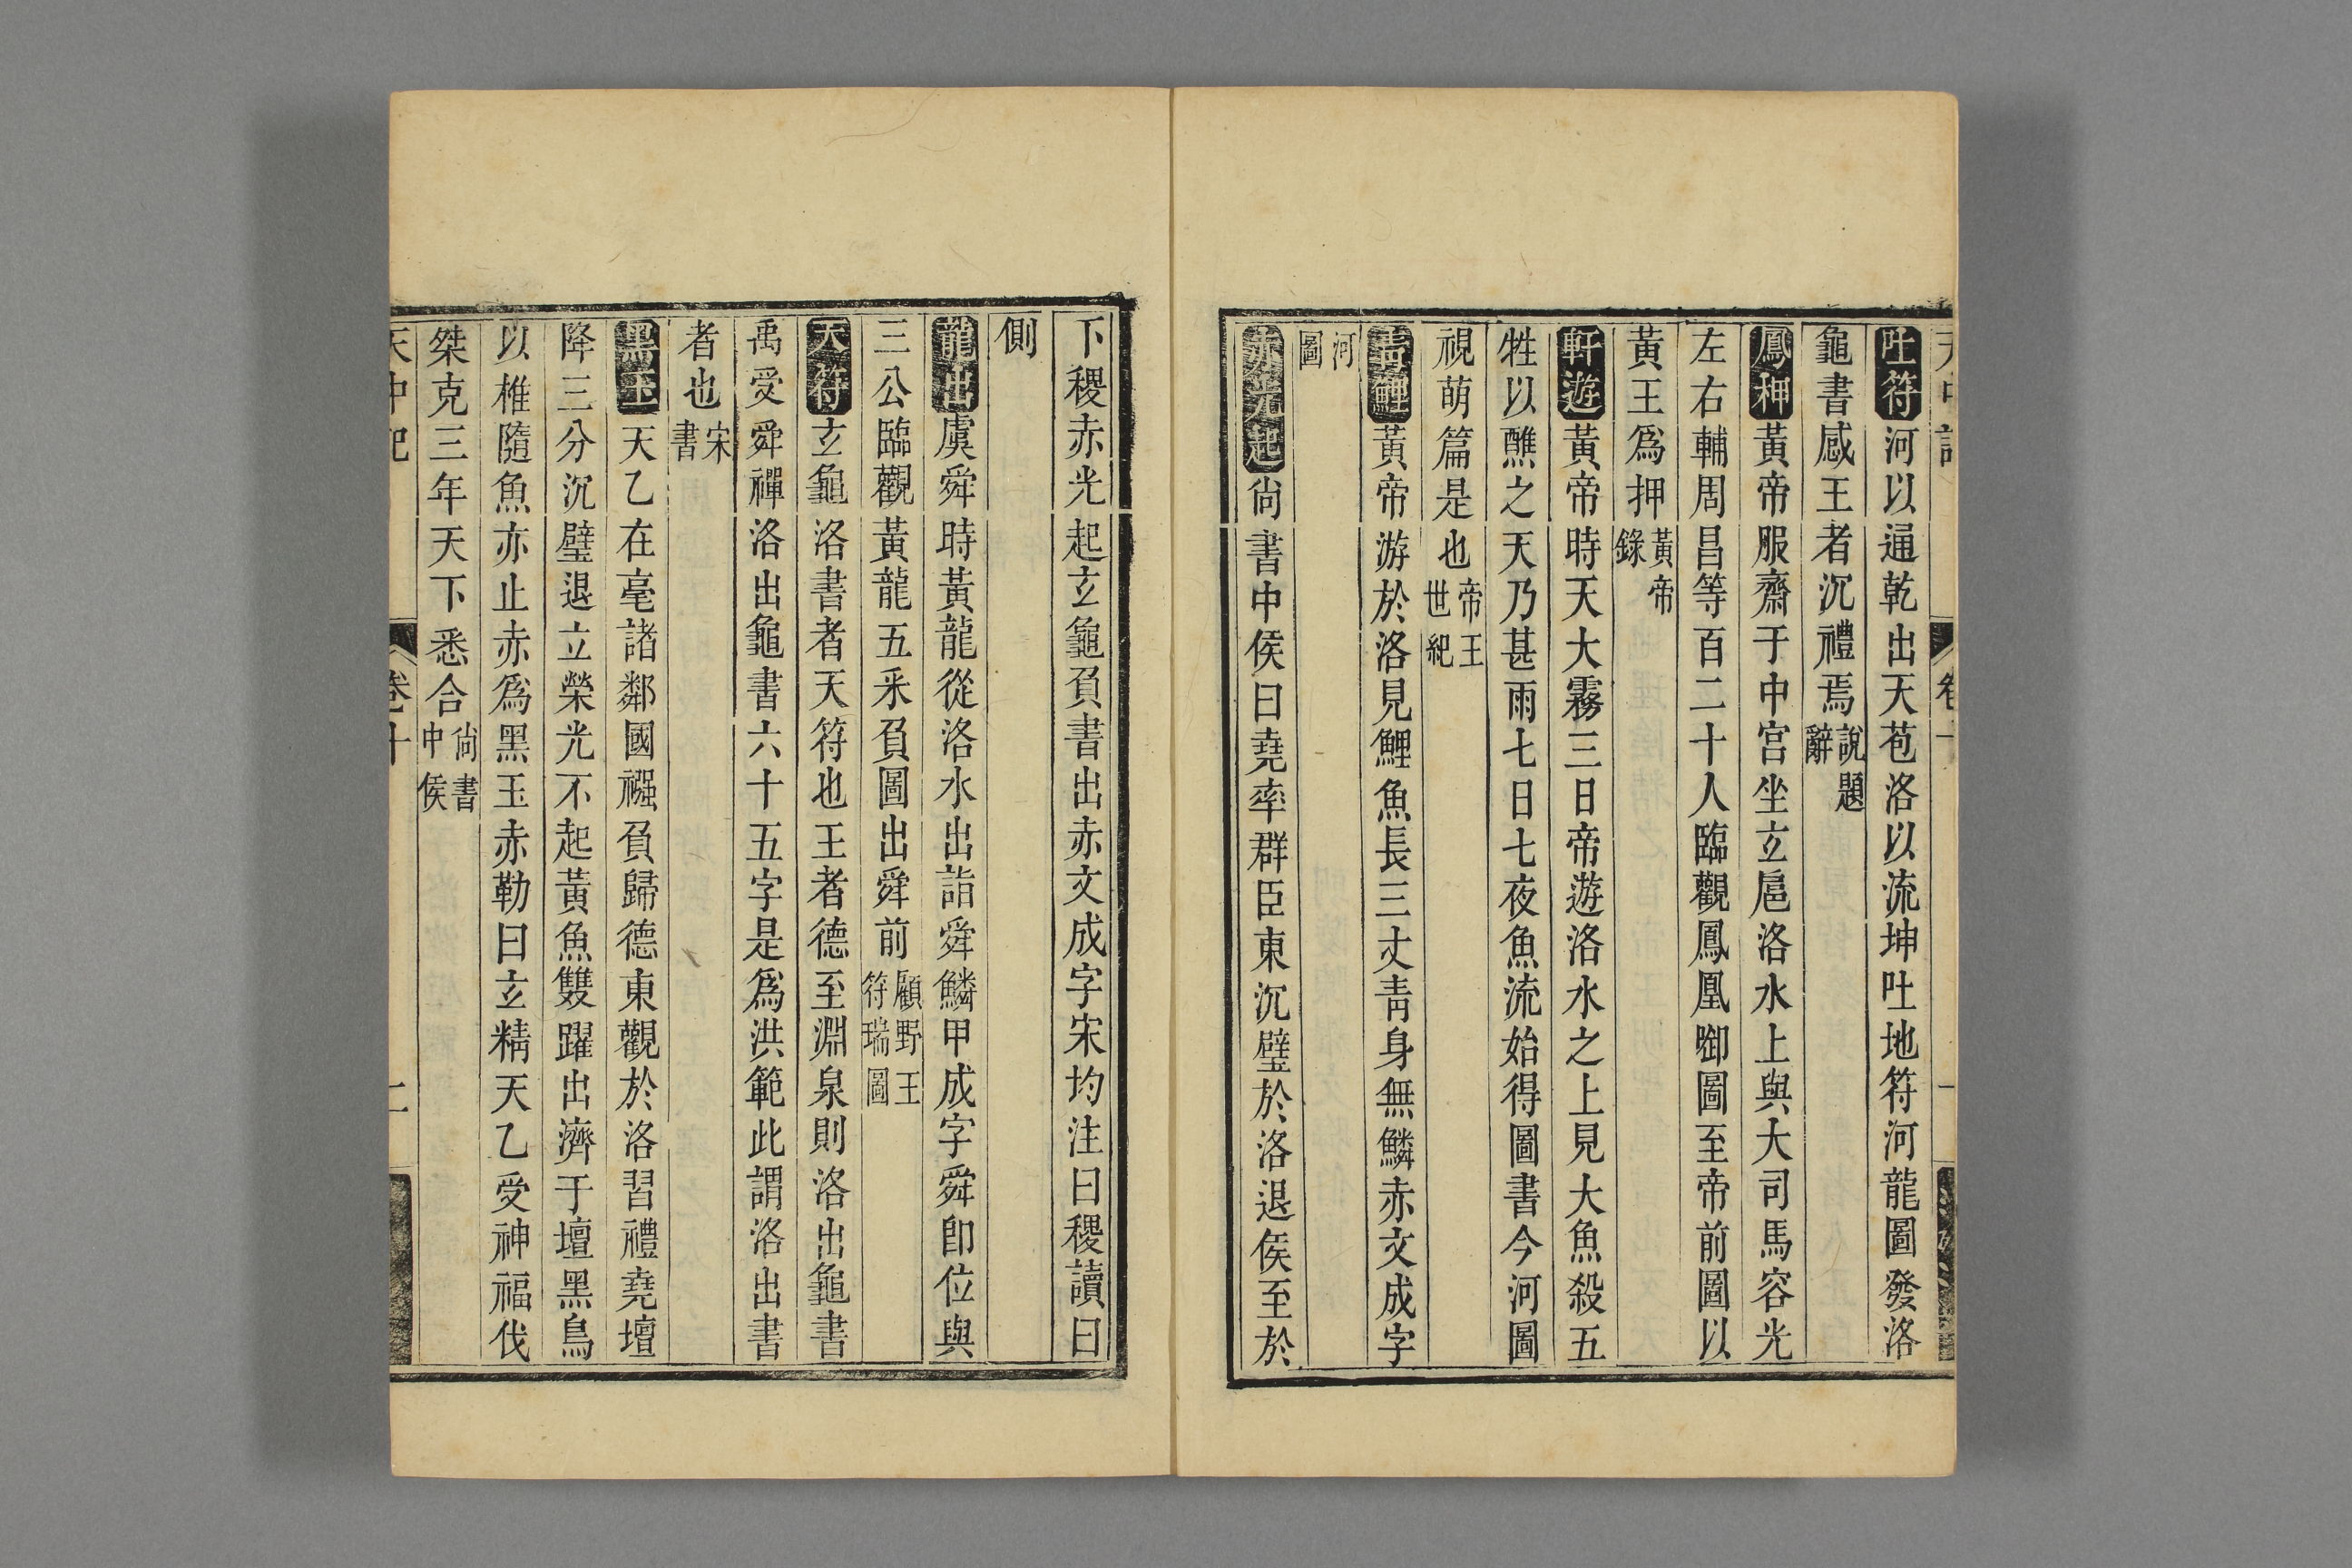 吐符河以通乾出天苞洛以流坤吐地符河龍圖發洛
龜書感王者沉禮焉說題辭
鳳神黃帝服齋于中宮坐玄扈洛水上與大司馬容光
左右輔周昌等百二十人臨觀鳳凰啣圖至帝前圖以
黃玉爲押黃帝錄
軒遊黃帝時天大霧三日帝遊洛水之上見大魚殺五
牲以醮之天乃甚雨七日七夜魚流始得圖書今河圖
視萌篇是也帝王世紀
青鯉黃帝游於洛見鯉魚長三丈青身無鱗赤文成字
河圖
赤光起尙書中侯曰堯率群臣東沉璧於洛退侯至於
下稷赤光起玄龜負書出赤文成字宋均注曰稷讀曰
側
龍出虞舜時黃龍從洛水出詣舜鱗甲成字舜卽位與
三公臨觀黃龍五釆負圖出舜前顧野王符瑞圖
天符玄龜洛書者天符也王者德至淵泉則洛出龜書
禹受舜禪洛出龜書六十五字是爲洪範此謂洛出書
者也宋書
黑玉天乙在亳諸鄰國襁負歸德東觀於洛習禮堯壇
降三分沉璧退立榮光不起黃魚雙躍出濟于壇黑鳥
以椎隨魚亦止赤爲黑玉赤勒曰玄精天乙受神福伐
桀克三年天下悉合尙書中侯
天中記
卷十
二